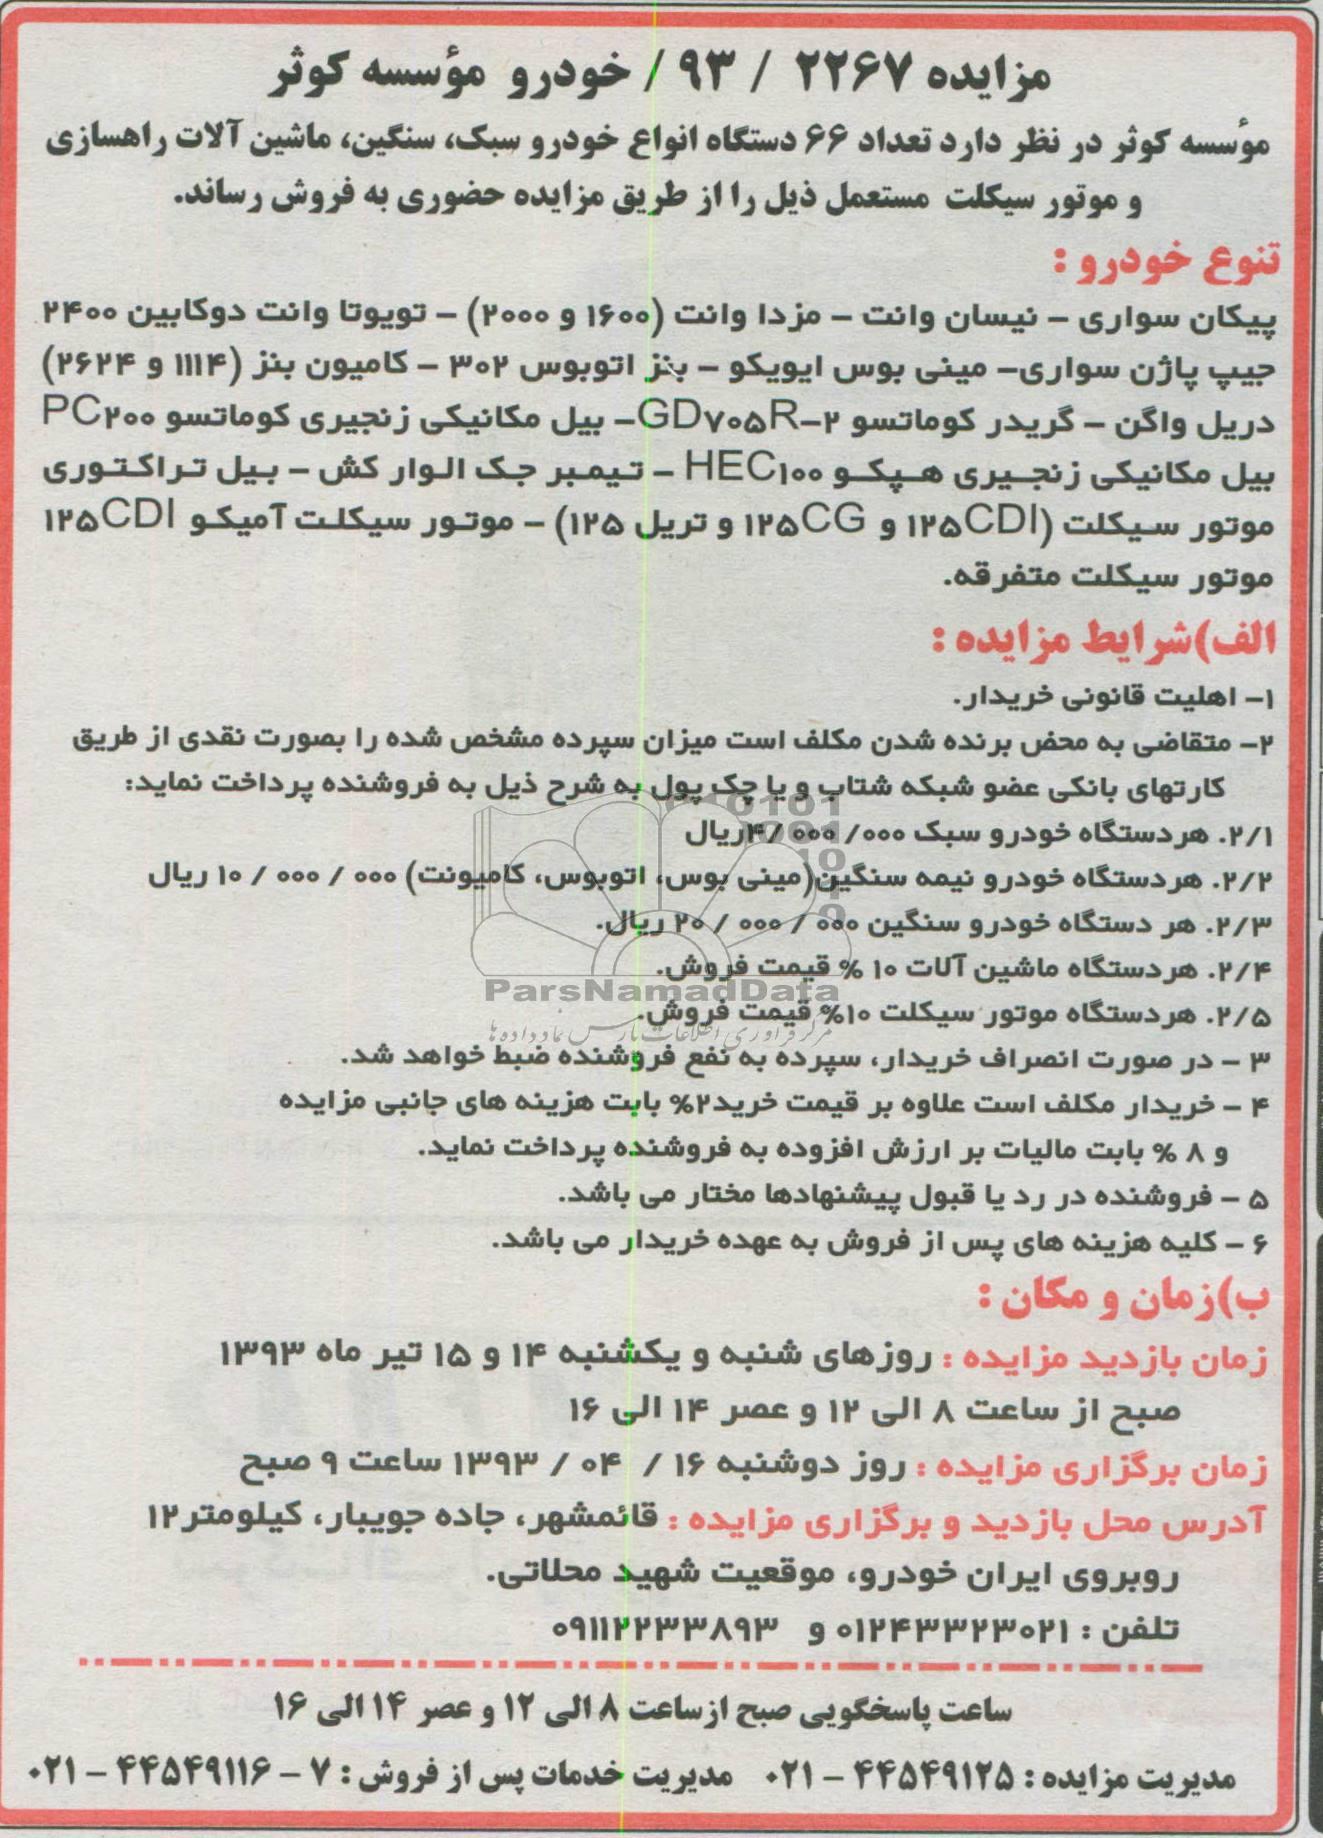 مزایده ۲۲۶۷ / ۹۳ / خودرو مؤسسه کوثر
مؤسسه کوثر در نظر دارد تعداد ۶۶ دستگاه انواع خودرو سبک، سنگین، ماشین آلات راهسازی
و موتور سیکلت مستعمل ذیل را از طریق مزایده حضوری به فروش رساند.
تنوع خودرو :
پیکان سواری – نیسان وانت – مزدا وانت (۱۶۰۰ و ۲۰۰۰) – تویوتا وانت دوکابین ۲۴۰۰
جیپ پاژن سواری– مینی بوس ایویکو – بنز اتوبوس ۳۰۲ – کامیون بنز (۱۱۱۴ و ۲۶۲۴)
دریل واگن – گریدر کوماتسو GD۷۰۵R-۲– بیل مکانیکی زنجیری کوماتسو PC۲۰۰
بیل مکانیکی زنجیری هپکو HEC۱۰۰ – تیمبر جک الوار کش – بیل تراکتوری
موتور سیکلت (۱۲۵CDI و ۱۲۵CG و تریل ۱۲۵) – موتور سیکلت آمیکو ۱۲۵CDI
موتور سیکلت متفرقه.
الف)شرایط مزایده :
۱– اهلیت قانونی خریدار.
۲– متقاضی به محض برنده شدن مکلف است میزان سپرده مشخص شده را بصورت نقدی از طریق
کارتهای بانکی عضو شبکه شتاب و یا چک پول به شرح ذیل به فروشنده پرداخت نماید:
۲/۱. هردستگاه خودرو سبک ۴/۰۰۰/۰۰۰ریال
۲/۲. هردستگاه خودرو نیمه سنگین(مینی بوس، اتوبوس، کامیونت) ۱۰ / ۰۰۰ / ۰۰۰ ریال
۲/۳. هر دستگاه خودرو سنگین ۲۰ / ۰۰۰ / ۰۰۰ ریال.
۲/۴. هردستگاه ماشین آلات ۱۰ % قیمت فروش.
ParsNamadData
۲/۵. هردستگاه موتور سیکلت ۱۰% قیمت فروش.
مرکز فرآوری اطلاعات پارس نماد داده ها
۳ – در صورت انصراف خریدار، سپرده به نفع فروشنده ضبط خواهد شد.
۴ – خریدار مکلف است علاوه بر قیمت خرید۲% بابت هزینه های جانبی مزایده
و ۸ % بابت مالیات بر ارزش افزوده به فروشنده پرداخت نماید.
۵ – فروشنده در رد یا قبول پیشنهادها مختار می باشد.
۶ – کلیه هزینه های پس از فروش به عهده خریدار می باشد.
ب)زمان و مکان :
زمان بازدید مزایده : روزهای شنبه و یکشنبه ۱۴ و ۱۵ تیر ماه ۱۳۹۳
صبح از ساعت ۸ الی ۱۲ و عصر ۱۴ الی ۱۶
زمان برگزاری مزایده : روز دوشنبه ۱۶ / ۰۴ / ۱۳۹۳ ساعت ۹ صبح
آدرس محل بازدید و برگزاری مزایده : قائمشهر، جاده جویبار، کیلومتر۱۲
روبروی ایران خودرو، موقعیت شهید محلاتی.
تلفن : ۰۱۲۴۳۳۲۳۰۲۱ و ۰۹۱۱۲۲۳۳۸۹۳
ساعت پاسخگویی صبح ازساعت ۸ الی ۱۲ و عصر ۱۴ الی ۱۶
مدیریت مزایده : ۴۴۵۴۹۱۲۵ – ۰۲۱ مدیریت خدمات پس از فروش : ۷ – ۴۴۵۴۹۱۱۶ – ۰۲۱